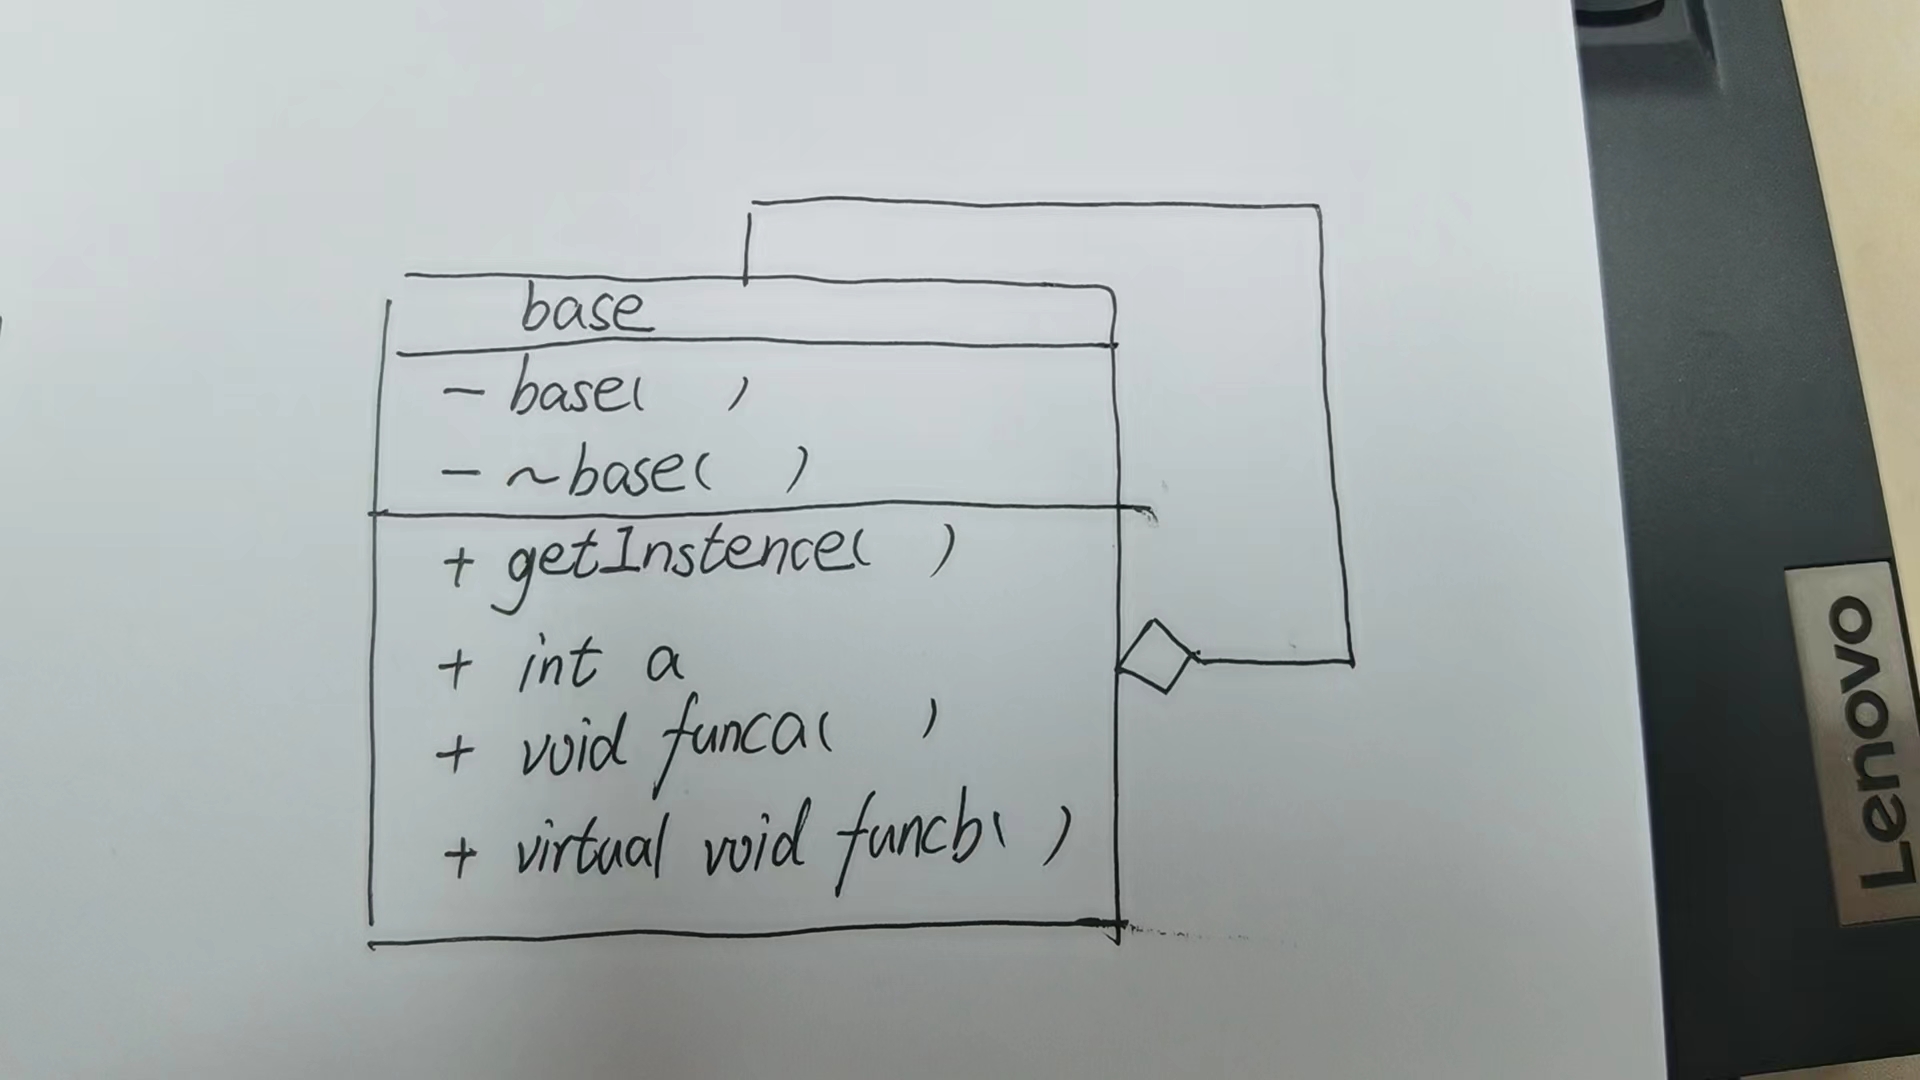 base
- base( )
- ~base( )
+ getInstence( )
+ int a
+ void funca( )
+ virtual void funcb( )
Lenovo